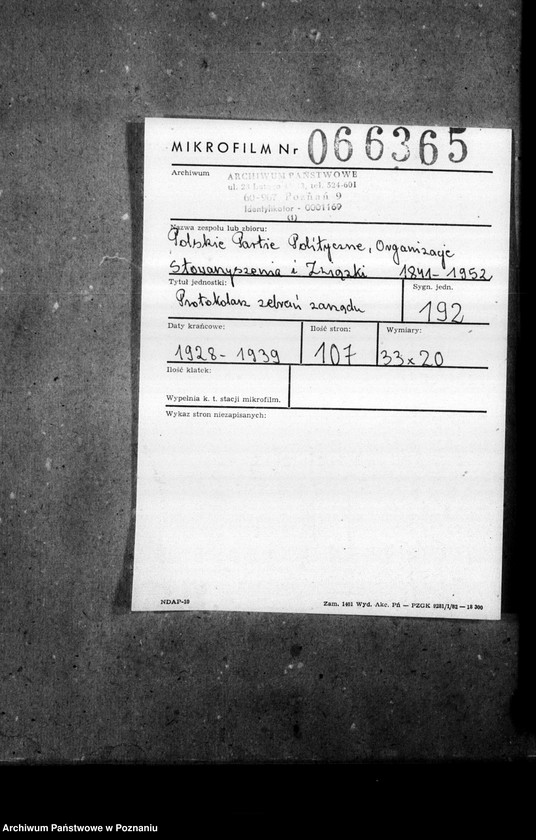 MIKROFILM Nr 066365
Archiwum
ARCHIWUM PAŃSTWOWE
ul. 23 Lutego 41/43, tel. 524-601
60-967 Poznań 9
Identyfikator - 0001169
(1)
Nazwa zespołu lub zbioru:
Polskie Partie Polityczne, Organizacje
Stowarzyszenia i Związki 1841-1952
Tytuł jednostki:
Sygn. jedn.
Protokolarz zebrań zarządu
192
Daty krańcowe:
Ilość stron:
Wymiary:
1928-1939
107
33x20
Ilość klatek:
Wypełnia k. t. stacji mikrofilm.
Wykaz stron niezapisanych:
NDAP-10
Zam. 1461 Wyd. Akc. Pń — PZGK 0281/I/82 — 18 300
Archiwum Państwowe w Poznaniu